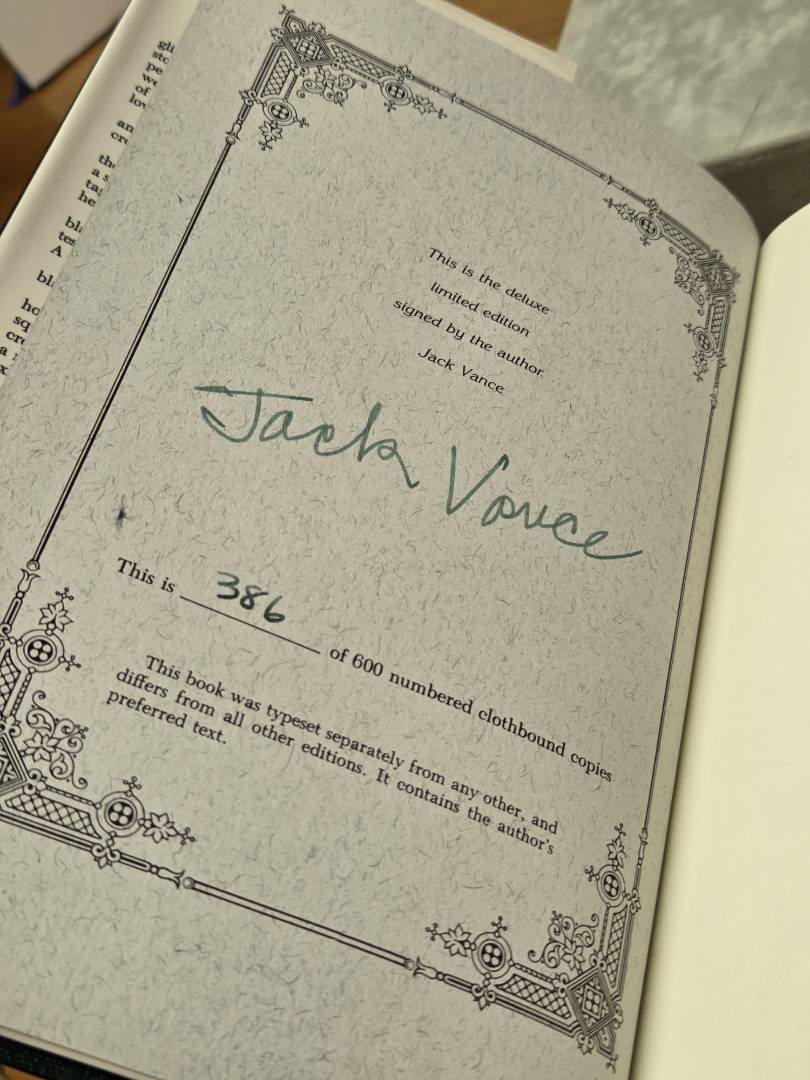 This is the deluxe
limited edition
signed by the author
Jack Vance
Jack Vance
This is 386 of 600 numbered clothbound copies
This book was typeset separately from any other, and
differs from all other editions. It contains the author's
preferred text.